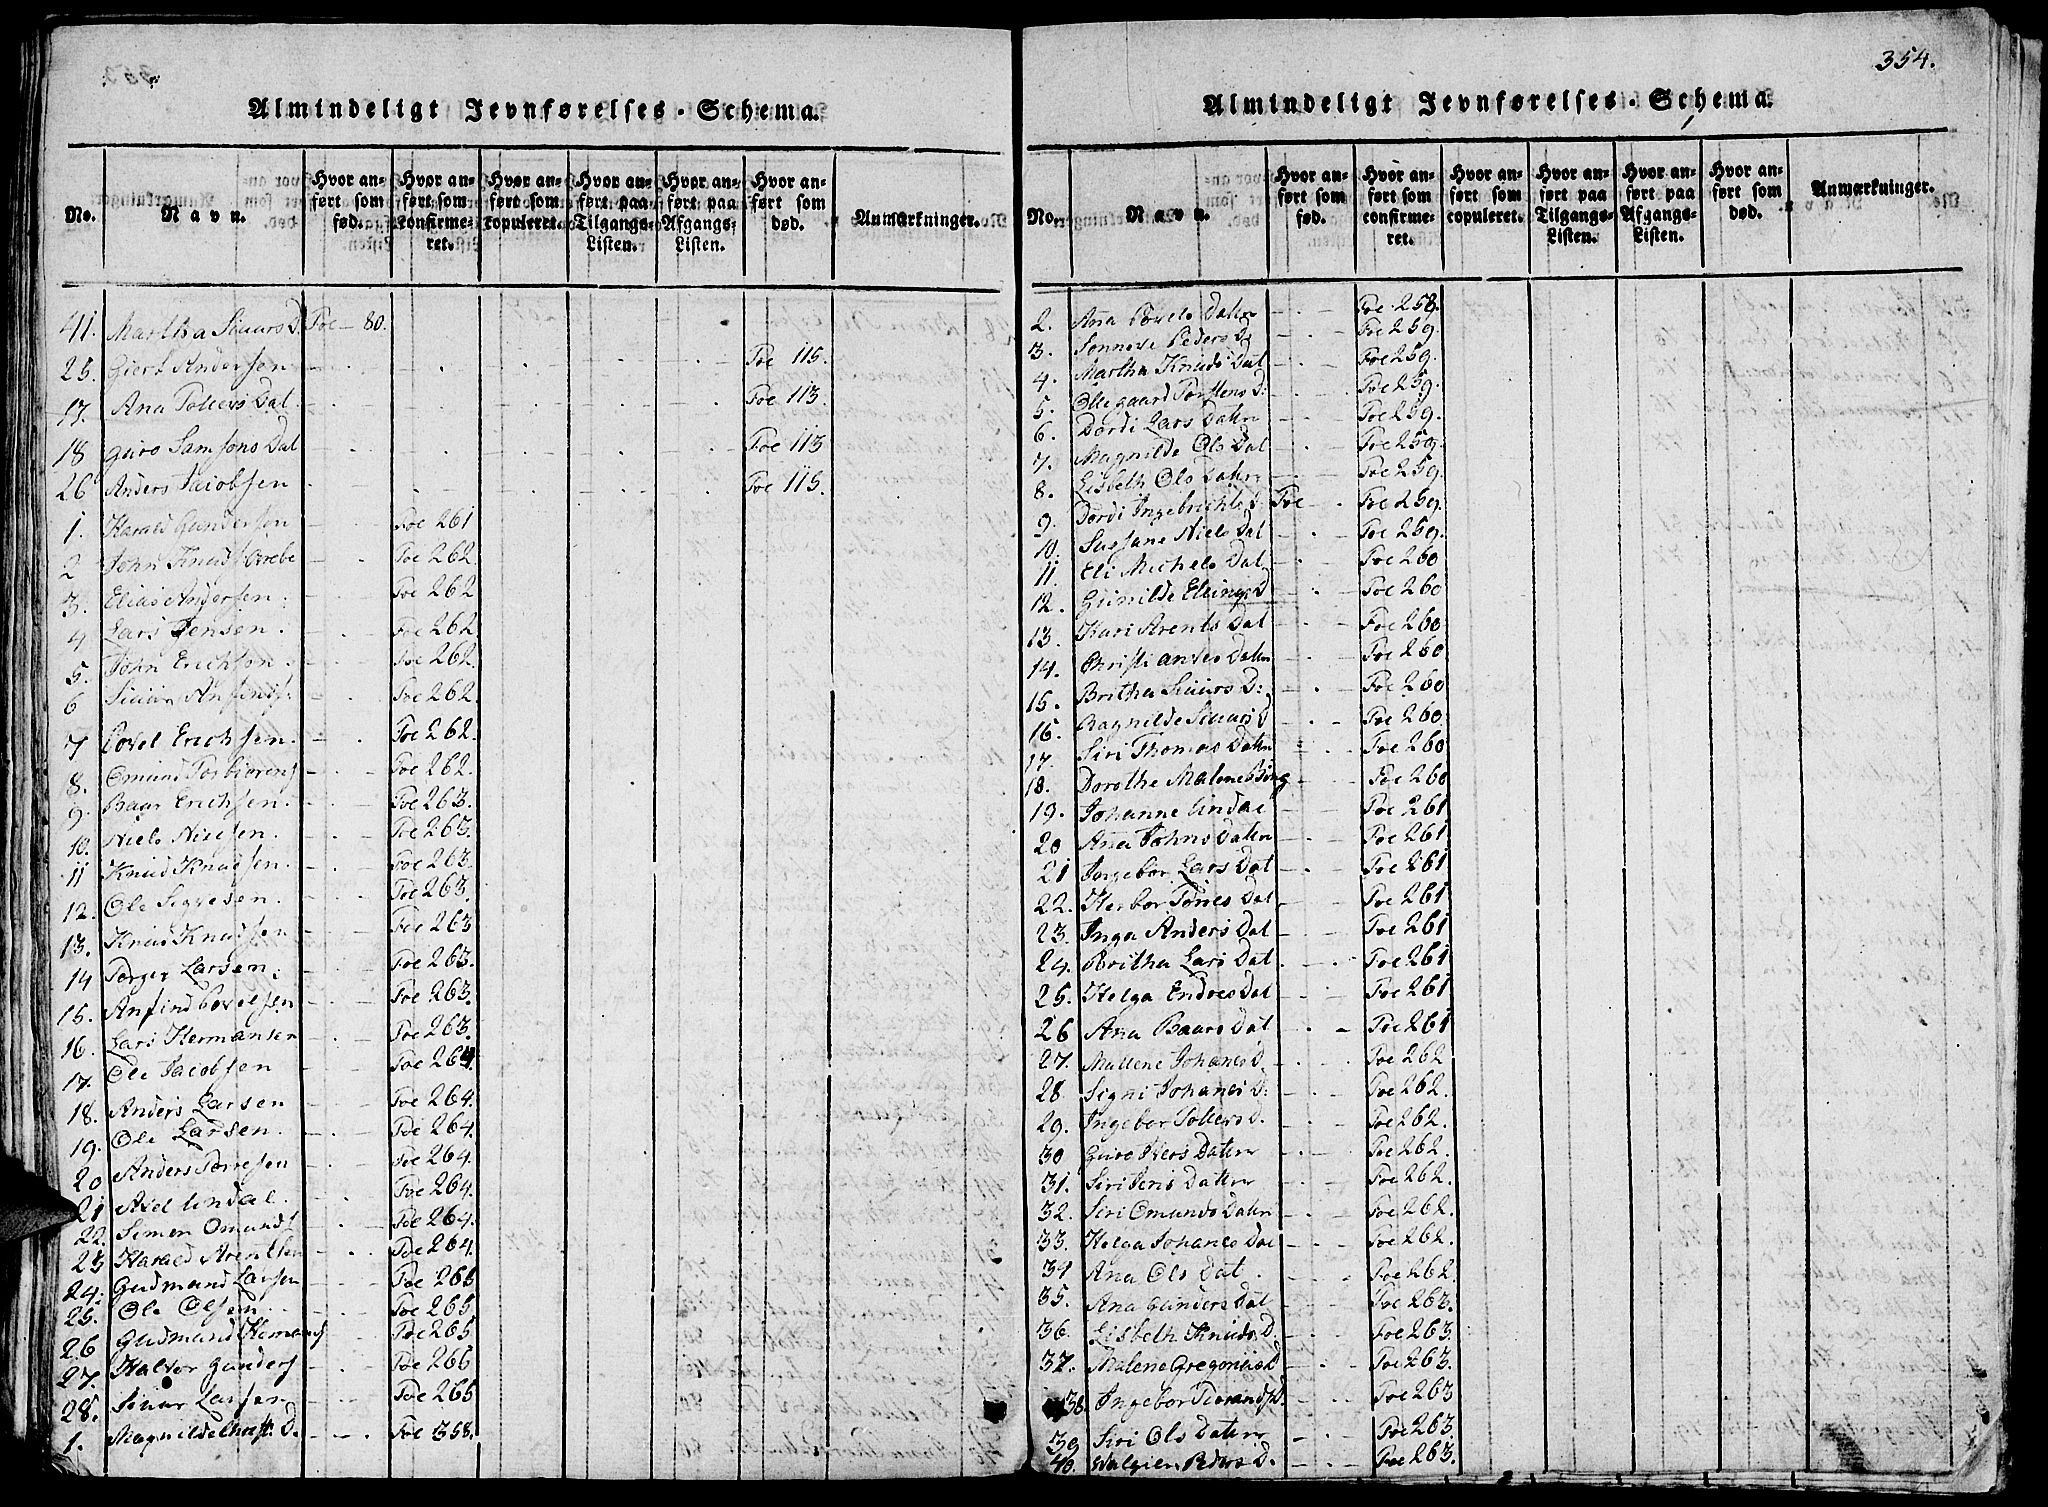 354.
Almindeligt Jevnførelses-Schema.
No.
Navn.
Hvor an-ført som fød.
Hvor an-ført som confirme-ret.
Hvor an-ført som copuleret.
Hvor an-ført paa Tilgangs-Listen.
Hvor an-ført paa Afgangs-Listen.
Hvor an-ført som død.
Anmærkninger.
41. Martha Siuurs D. Foe - 80.
25. Giert Andersen Foe 115.
17. Ana Tollers Dat. Foe 113.
18 Guro Samsons Dat Foe 113
26 Anders Jacobsen Foe 115.
1. Harald Gundersen Foe 261
2 John Knuds Foe 262
3. Elias Andersen. Foe 262
4 Lars Jensen. Foe 262.
5. John Erichson. Foe 262.
6 Siuur Anfinds. Foe 262.
7 Povel Erichsen. Foe 262.
8. Omund Torbiørens Foe 262.
9. Baar Erichsen. Foe 263.
10. Niels Nielsen. Foe 263.
11 Knud Knudsen. Foe 263.
12. Ole Siversen. Foe 263.
13. Knud Knudsen Foe 263
14 Torger Larsen. Foe 263.
15. Anfind Povelsen Foe 263.
16. Lars Hermansen Foe 263.
17. Ole Jacobsen Foe 264.
18. Anders Larsen Foe 264.
19. Ole Larsen. Foe 264.
20 Anders Torresen Foe 264.
21 Axel Undal. Foe 264.
22. Simon Omunds Foe 264.
23 Harald Arentsen Foe 264.
24. Gudmund Larsen Foe 265
25. Ole Olsen Foe 265.
26 Gudmund Foe 265
27. Halvor Gunders Foe 266
28. Siuur Larsen Foe 265
1. Magnilde Christ. D. Foe 358.
Almindeligt Jevnførelses-Schema.
No.
Navn.
Hvor an-ført som fød.
Hvor an-ført som confirme-ret.
Hvor an-ført som copuleret.
Hvor an-ført paa Tilgangs-Listen.
Hvor an-ført paa Afgangs-Listen.
Hvor an-ført som død.
Anmærkninger.
2. Ana Povels Datter Foe 258.
3. Sonneve Peders D. Foe 259.
4. Martha Knuds Dat Foe 259.
5. Ollegaard Torstens D. Foe 259.
6. Dordi Lars Datter Foe 259.
7. Magnilde Ols Dat Foe 259.
8. Lisbeth Ols Datter Foe 259.
9. Dordi Ingebrichts D. Foe Foe 259.
10. Sussane Niels Dat Foe 259.
11. Eli Michels Dat. Foe 260
12. Gunilde Ellings D Foe 260
13. Kari Arents Dat Foe 260
14. Datter Foe 260.
15. Britha Siuurs D: Foe 260
16. Ragnilde Siuurs D Foe 260
17. Siri Thomas Datter Foe 260
18. Dorothe Malene Bing Foe 260
19. Johanne Undal Foe 261
20 Ana Johns Datter Foe 261
21 Ingebor Lars Dat Foe 261
22. Herbor Tønes Dat Foe 261
23. Inga Anders Dat Foe 261
24. Britha Lars Dat. Foe 261
25. Helga Endres Dat Foe 261
26 Ana Baars Dat Foe 261
27. Mallene Johanes D. Foe 262
28. Signi Johanes D. Foe 262.
29. Ingebor Tollers D. Foe 262.
30 Guro Iters Datter Foe 262.
31. Siri Jens Datter Foe 262.
32. Siri Omunds Datter Foe 262.
33. Helga Johanes Dat Foe 262.
34 Ana Ols Dat. Foe 262.
35. Ana Gunders Dat Foe 263.
36. Lisbeth Knuds D. Foe 263.
37. Malene Gregorius D Foe 263.
38. Ingebor D. Foe 263
39 Siri Ols Datter Foe 263.
40. Peders D. Foe 263.